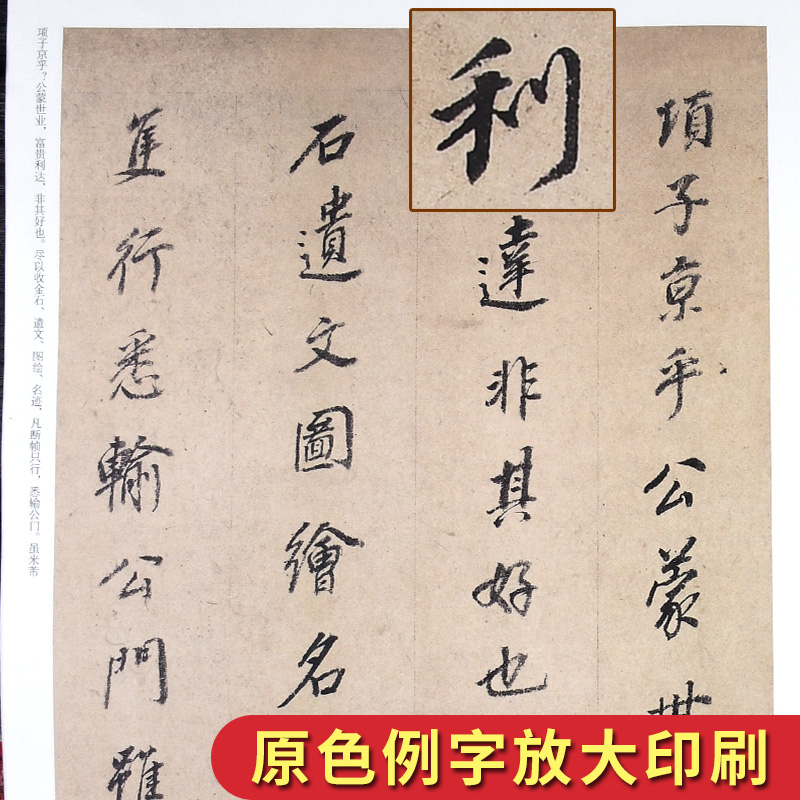 項子京乎公蒙世
利
達非其好也
石遺文圖繪名
隻行悉輸公門雖
项子京乎？公蒙世业，富贵利达，非其好也。尽以收金石、遗文、图绘、名迹，凡断帧只行，悉输公门。虽米芾
原色例字放大印刷